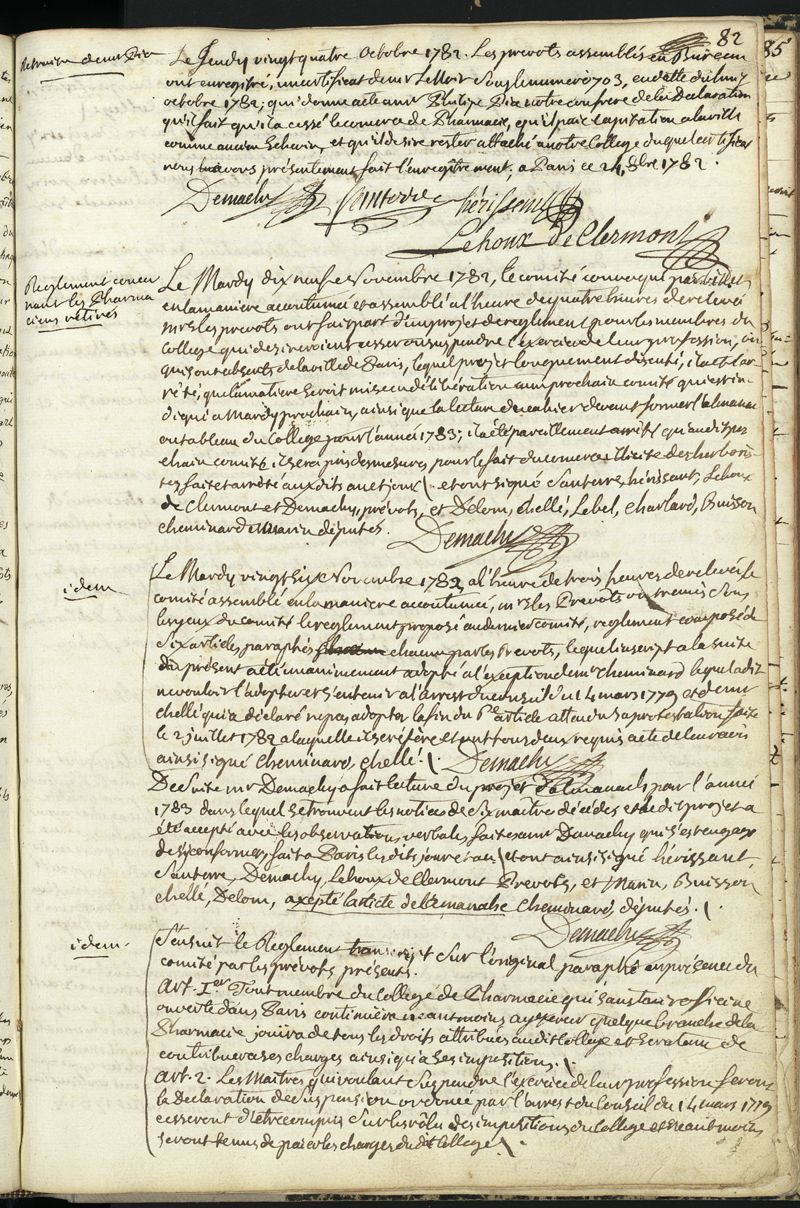 82
Retraite de mr Dia
Le Jeudy vingt quatre Octobre 1782. Les prevots assemblés en Bureau
ont enregitré, un certificat de mr Le Noir Sous le numero 703, en datte du huit
octobre 1782; qui donne acte a mr Philipe Dia notre confrere de la Declaration
qu'il fait qu'il a cessé le comerce de Pharmacie, qu'il paie capitation a la ville
comme ancien Echevin, et qu'il desire rester attaché a notre College duquel certificat
nous avons présentement fait l'enregitrement, a Paris ce 24 8bre 1782.
Demachy Santerre hérissant
Lehoux De Clermont
Reglement concer
nant les Pharma
ciens retirés
Le Mardy dix neuf Novembre 1782, le comité convoqué par billets
en la maniere accoutumée et assemblé a l'heure de quatre heures de relevée
mrs les prevots ont fait part d'un projet de reglement pour les membres du
College qui desireroient asser ou suspendre l'exercice de leur profession, ou
qui sont absents de la ville de Paris, lequel projet longuement discuté, il a été ar
rêté, que la matiere seroit mise en délibération au prochain comité qui est in
diqué a Mardy prochain, ainsi que la lecture du cahier devant former l'almanac
ou tableau du College pour l'année 1783; il a été pareillement arrêté qu'audit pro
chain comité il sera pris des mesures, pour le fait du comerce illicite des herboris-
tes fait et arrêté aux dits an et jour \. et ont signé Santerre, hérissant, Lehoux
de Clermont et Demachy, prévots, et Delom, chellé, Lebel, charlard, Buisson
cheminard et Marin députés. Demachy
idem
Le Mardy vingt Six Novembre 1782, a l'heure de trois heures de relevée le
comité assemblé en la maniere accoutumée, mrs les Prevots ont remis Sous
les yeux du comité le reglement proposé au dernier comité, reglement composé de
Six articles paraphés chacun par les Prevots, lequel inscript a la suite
du présent a été unanimement adopté a l'exception de mr cheminard lequel a dit
ne vouloir l'adopter et s'en tenir a l'arrest du conseil du 14 mars 1779 et de mr
chellé qui a déclaré ne pas adopter la fin du 6e article attendu sa protestation faite
le 2 juillet 1782 a laquelle il se réfère et ont tous deux requis acte de leur avis
ainsi signé Cheminard, chellé. \. Demachy
De Suite mr Demachy a fait lecture du projet d'almanach pour l'année
1783 dans lequel se trouvent les notices de Six maîtres décédés et le dit projet a
été accepté avec les observations verbales faites a mr Demachy qui s'est engagé
de s'y conformer, fait a Paris les dits jour et an \ et ont ainsi signé hérissant,
Santerre, Demachy, Lehoux de Clermont Prevots, et Marin, Buisson
chellé, Delom, excepté l'article de l'almanac Cheminard, députés. \.
Demachy
idem.
S'ensuit le Reglement Sur l'original paraphé en présence du
comité par les prévots présents.
Art. Ier Tout membre du College de Pharmacie qui sans tenir officine
ouverte dans Paris continuera neantmoins a y exercer quelque branche de la
Pharmacie jouira de tous les droits attribués au dit College et sera tenu de
contribuer a ses charges ainsi qu'a ses impositions. \.
Art. 2. Les Maîtres qui voulant Suspendre l'exercice de leur profession feront
la Declaration de Suspension ordonée par l'arrest du Conseil du 14 mars 1779
cesseront d'etre compris Sur les rôles des impositions du College et neantmoins
seront tenus de paier les charges du dit College. \.